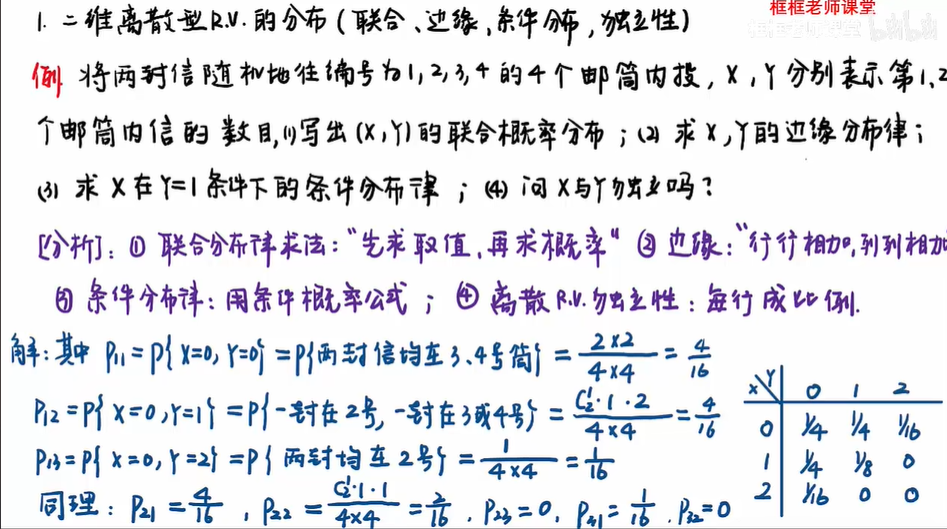 框框老师课堂
1. 二维离散型R.V.的分布(联合、边缘、条件分布,独立性)
bilibili
例 将两封信随机地往编号为1,2,3,4的4个邮筒内投,X,Y分别表示第1,2
个邮筒内信的数目,(1)写出(X,Y)的联合概率分布;(2) 求X,Y的边缘分布律;
(3) 求X在Y=1条件下的条件分布律;(4) 问X与Y独立吗?
[分析]:① 联合分布律求法:“先求取值,再求概率” ② 边缘:“行行相加,列列相加
③ 条件分布律:用条件概率公式;④ 离散R.V.独立性:每行成比例.
解:其中 P11=P{X=0,Y=0}=P{两封信均在3、4号筒}=2×2/4×4=4/16
P12=P{X=0,Y=1}=P{一封在2号,一封在3或4号}=C½·1·2/4×4=4/16
P13=P{X=0,Y=2}=P{两封均在2号}=1/4×4=1/16
同理:P21=4/16,P22=C½·1·1/4×4=2/16,P23=0,P31=1/16,P32=0
X Y 0 1 2
0 1/4 1/4 1/16
1 1/4 1/8 0
2 1/16 0 0